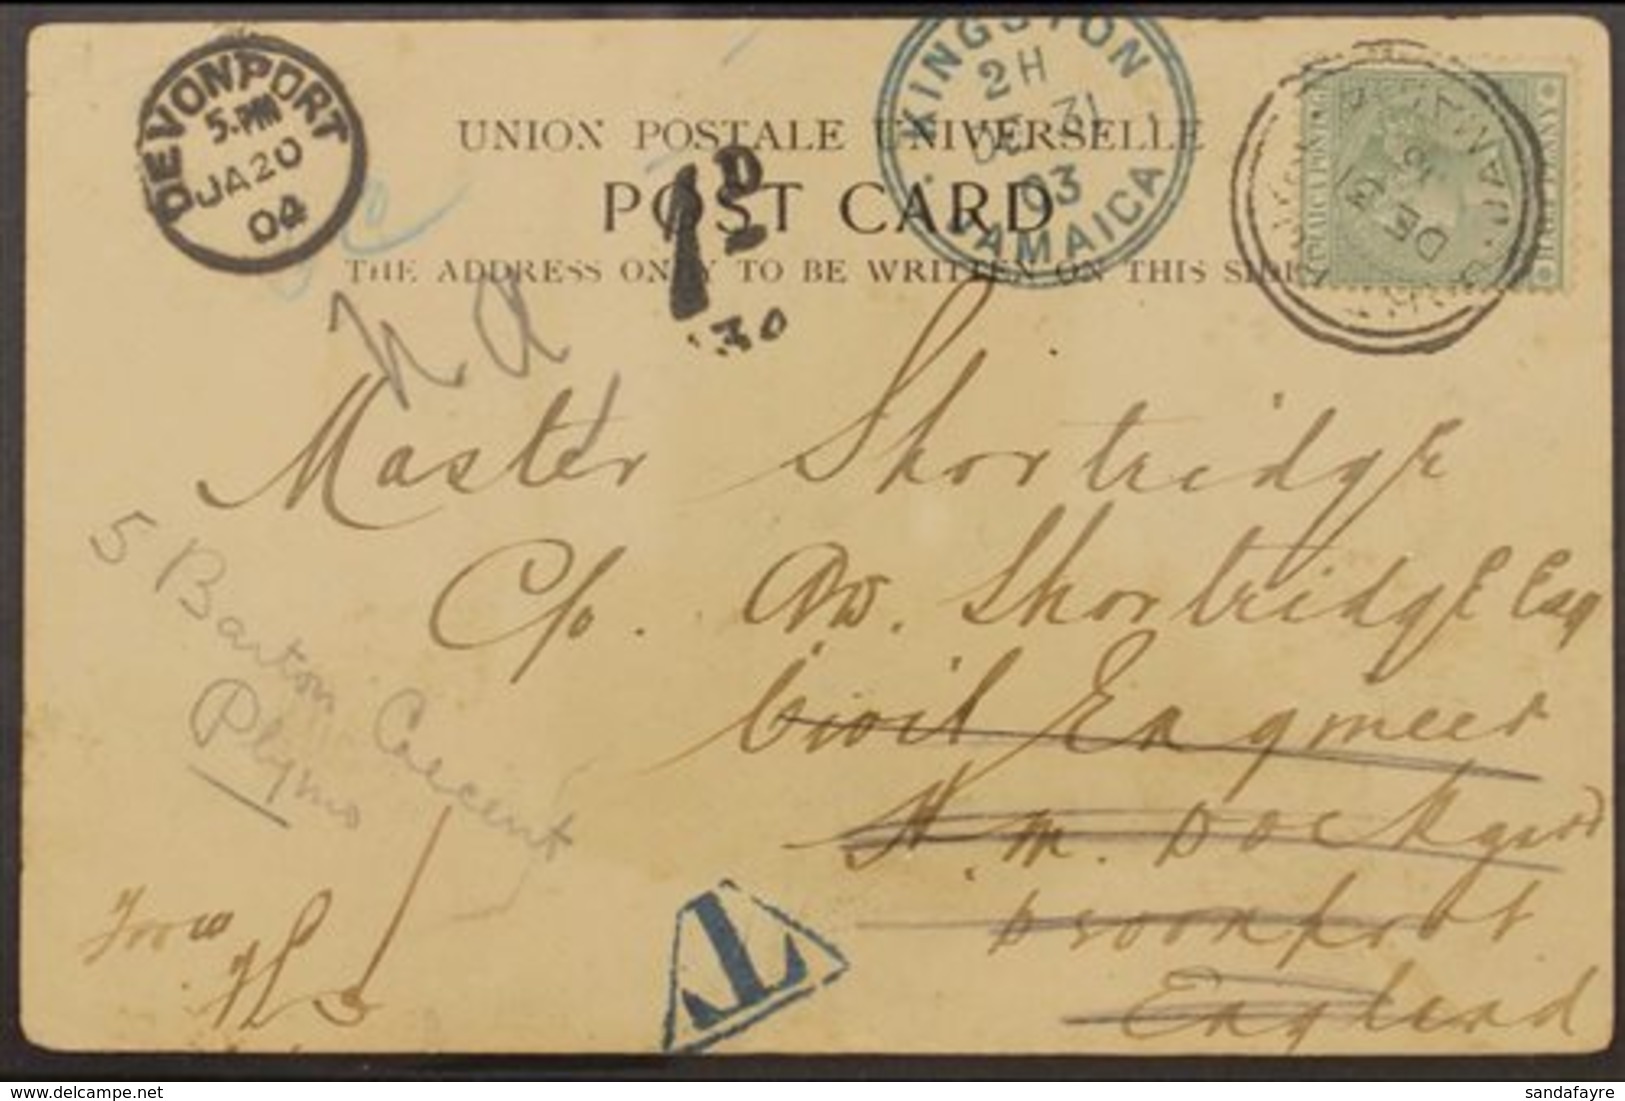 DEVONPORT
5.PM
JA 20
04
KINGSTON
2H
DE 31
03
JAMAICA
JAMAICA
DE 31
HALF PENNY
UNION POSTALE UNIVERSELLE
POST CARD
THE ADDRESS ONLY TO BE WRITTEN ON THIS SIDE
1D
30
Master Shortridge
C/o. Shortridge Esq
Civil Engineer
H. M. Dockyard
Devonport
England
5 Barton Crescent
Plymo
From
T
sandafayre